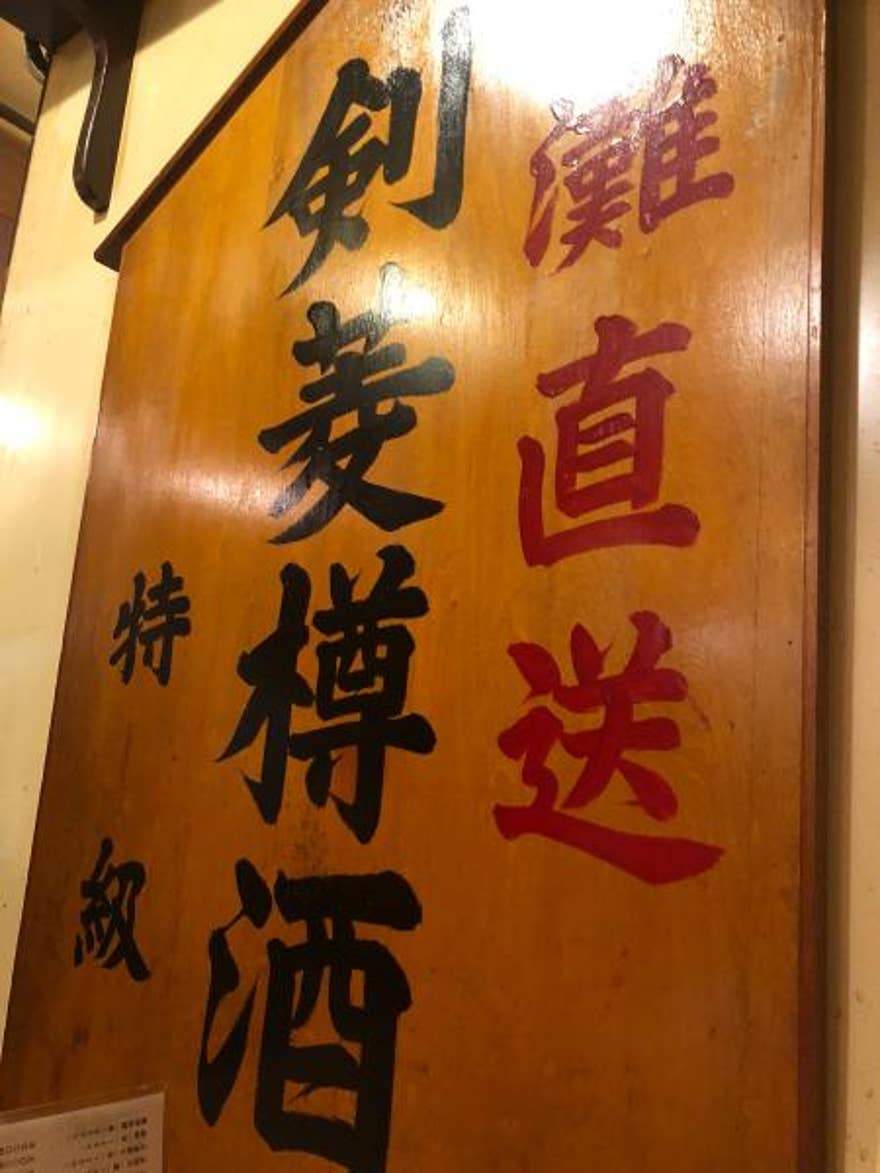 灘直送
剣菱樽酒
特級